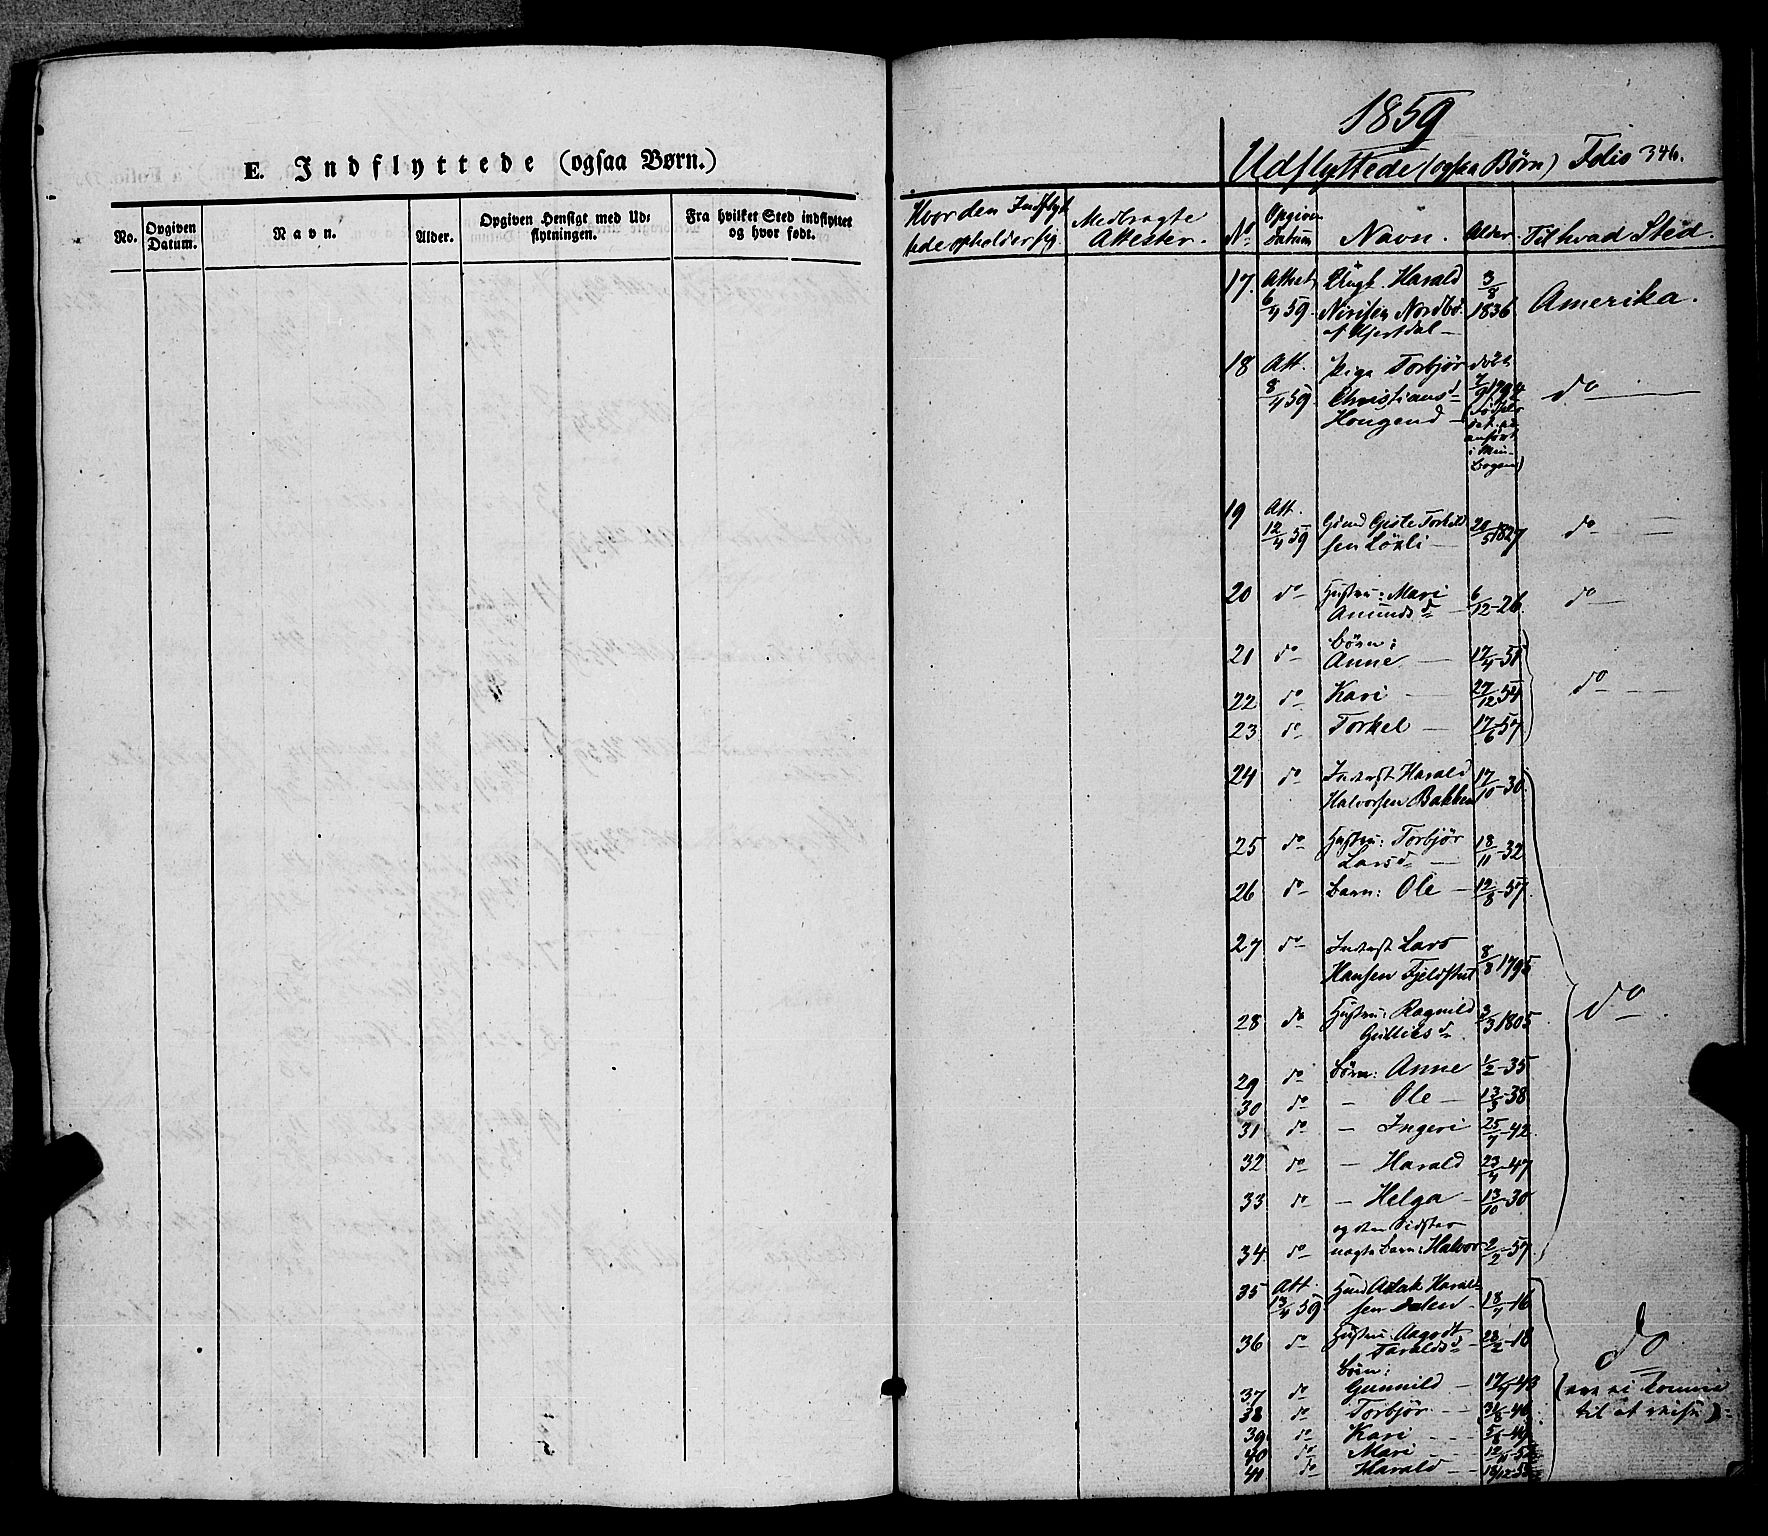 E. Indflyttede (ogsaa Børn.)
No.
Opgiven Datum.
Navn.
Alder.
Opgiven Hensigt med Ud-
flytningen.
Fra hvilket Sted indflyttet
og hvor født.
Hvor den Indflyt
tede opholder sig.
Medbragte
Attester.
1859
Udflyttede (ogsaa Børn) Folio 346.
No
Opgiven
Datum
Navn.
Alder
Til hvad Sted.
17. Attest 6/4 59. Ungk. Harald 3/8 1836
Nordbø
Amerika.
18 Att. 8/4 59. Pige Torbjør
Christiansd
do
19 Att. 12/4 59 Torkild
sen 20/5 1827 do
20 do Hustru: Mari
Amundsd 6/12-26 do
Børn:
21 do Anne 17/4-51
22 do Kari 27/12-54 do
23 do Torkel 17/6-57
24 do Inderst Harald
Halvorsen Bakken 17/10-30
25 do Hustru: Torbjør
Larsd 18/11-32
26 do Barn: Ole 12/8-57.
27 do Inderst Lars
Hansen 8/8 1795
28 do Hustru: Ragnild
Gulliksd. 3/3 1805 do
29 do Børn: Anne 1/2-35
30 do - Ole 13/3-38
31 do - Ingeri 25/7-42
32 do - Harald 23/4-47
33 do - Helga 13/10-30
og den Sidst
34 do Barn: Halvor 2/2-57.
35 Att. 13/4 59 Aslak Harald
sen Dalen 18/7-16
36 do Hustru: Aagodt
Taraldsd 28/2-18 do
Børn:
37 do Gunnild 17/9-43 (ei komne
38 do Torbjør 31/8-46 til at reise)
39 do Kari
40 do Mari
41 do Harald